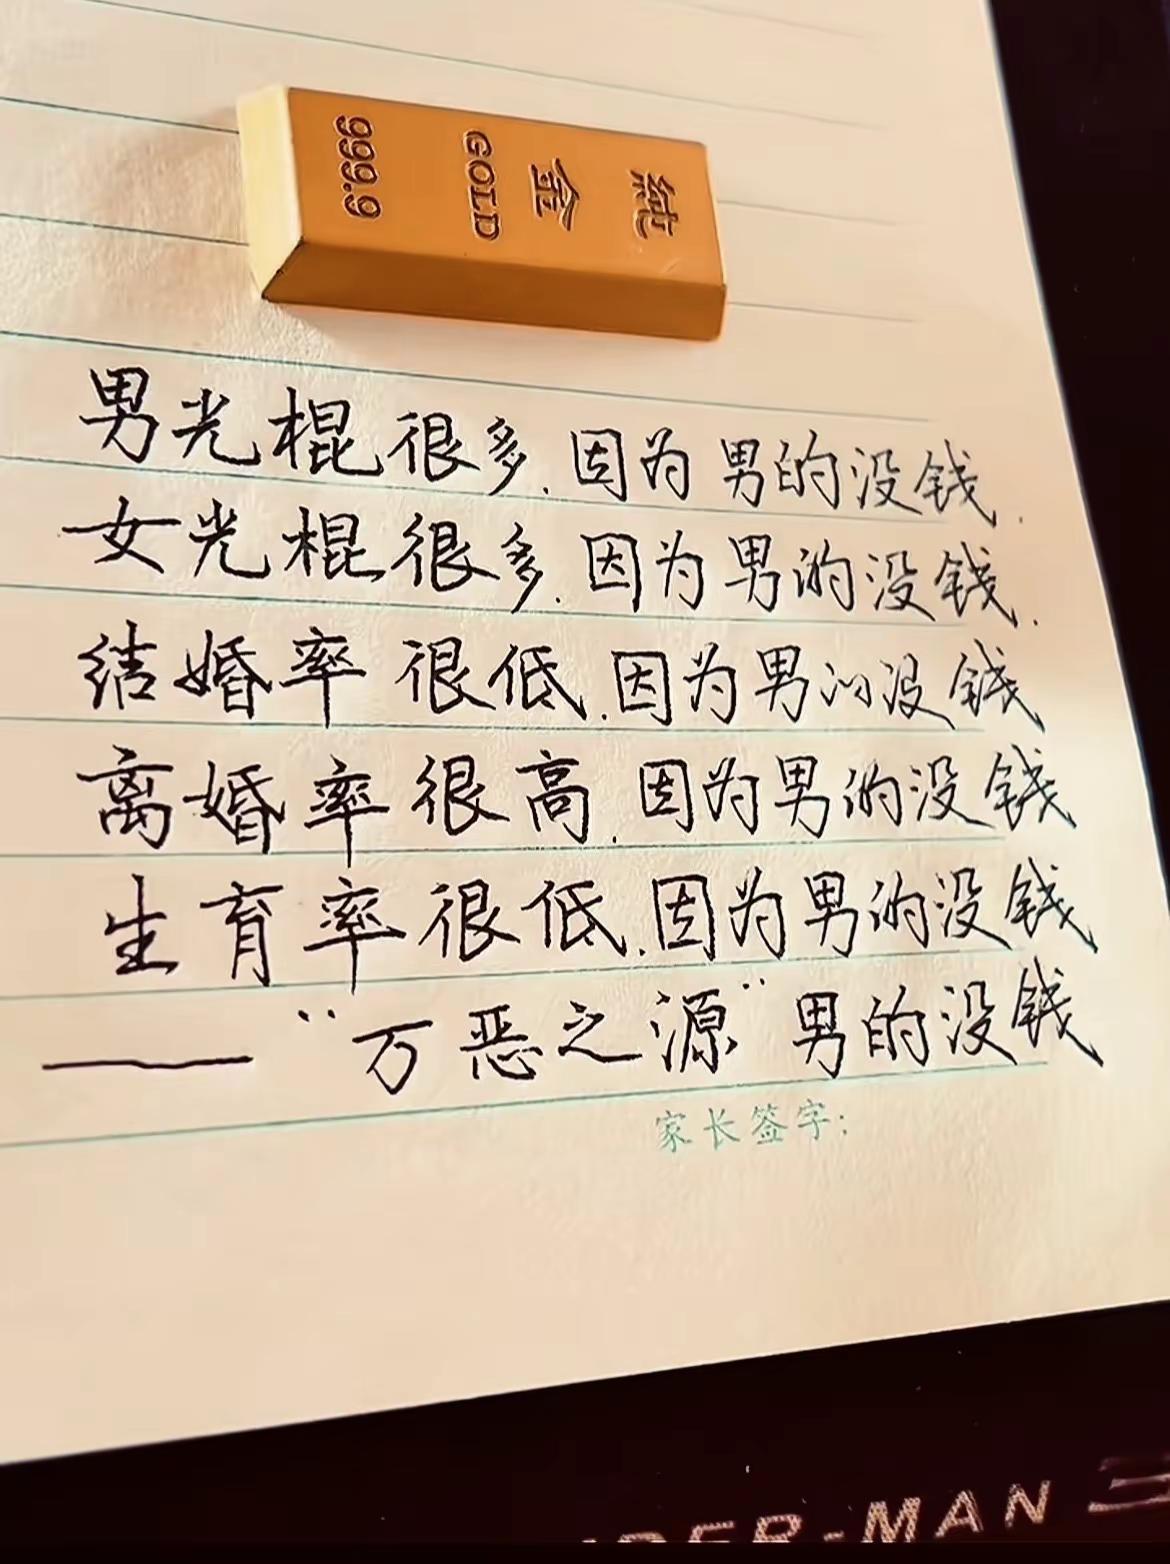 純金
GOLD
999.9
男光棍很多.因为男的没钱.
女光棍很多.因为男的没钱.
结婚率很低.因为男的没钱
离婚率很高.因为男的没钱
生育率很低.因为男的没钱
——"万恶之源"男的没钱
家长签字:
DER-MAN